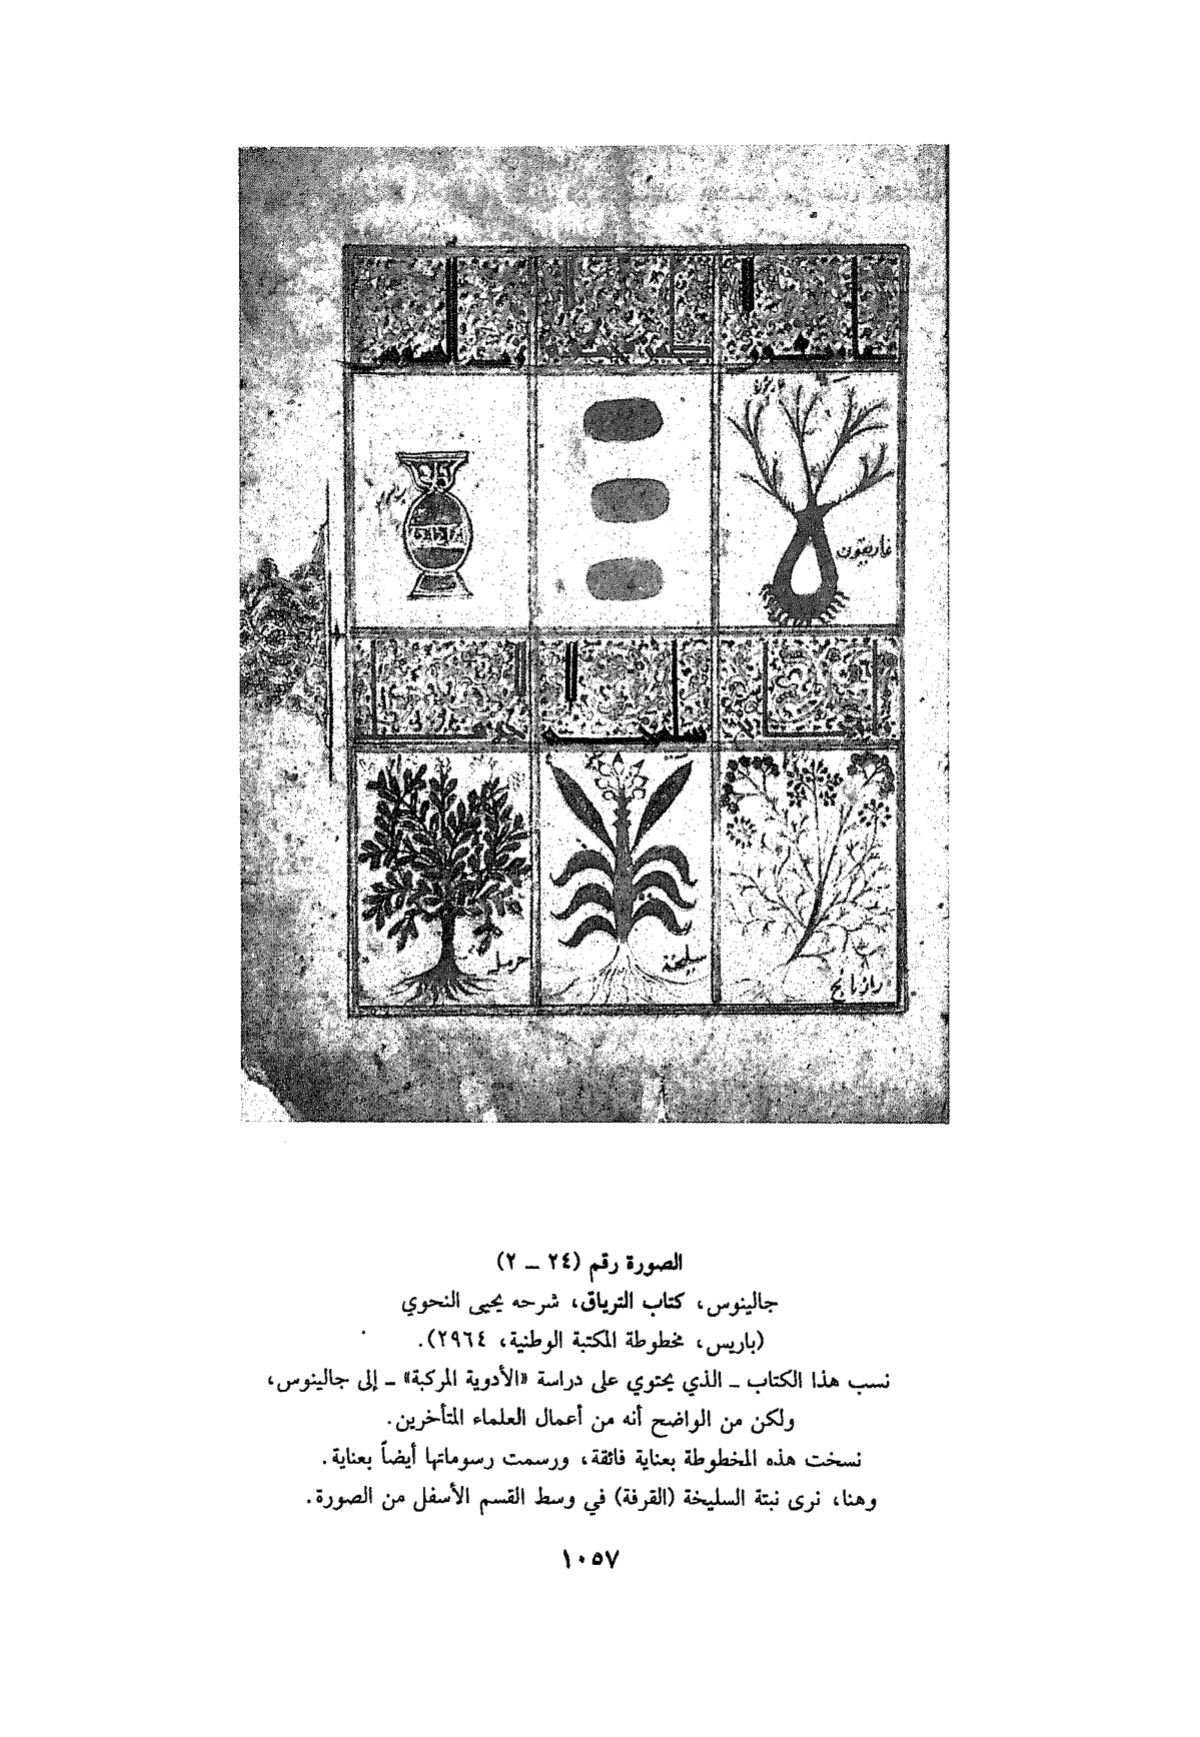 غاريقون
سليخة
حرمل
رازيانج
الصورة رقم (٢٤ ـ ٢)
جالينوس، كتاب الترياق، شرحه يحيى النحوي
(باريس، مخطوطة المكتبة الوطنية، ٢٩٦٤).
نسب هذا الكتاب ـ الذي يحتوي على دراسة «الأدوية المركبة» ـ إلى جالينوس،
ولكن من الواضح أنه من أعمال العلماء المتأخرين.
نسخت هذه المخطوطة بعناية فائقة، ورسمت رسوماتها أيضاً بعناية.
وهنا، نرى نبتة السليخة (القرفة) في وسط القسم الأسفل من الصورة.
١٠٥٧